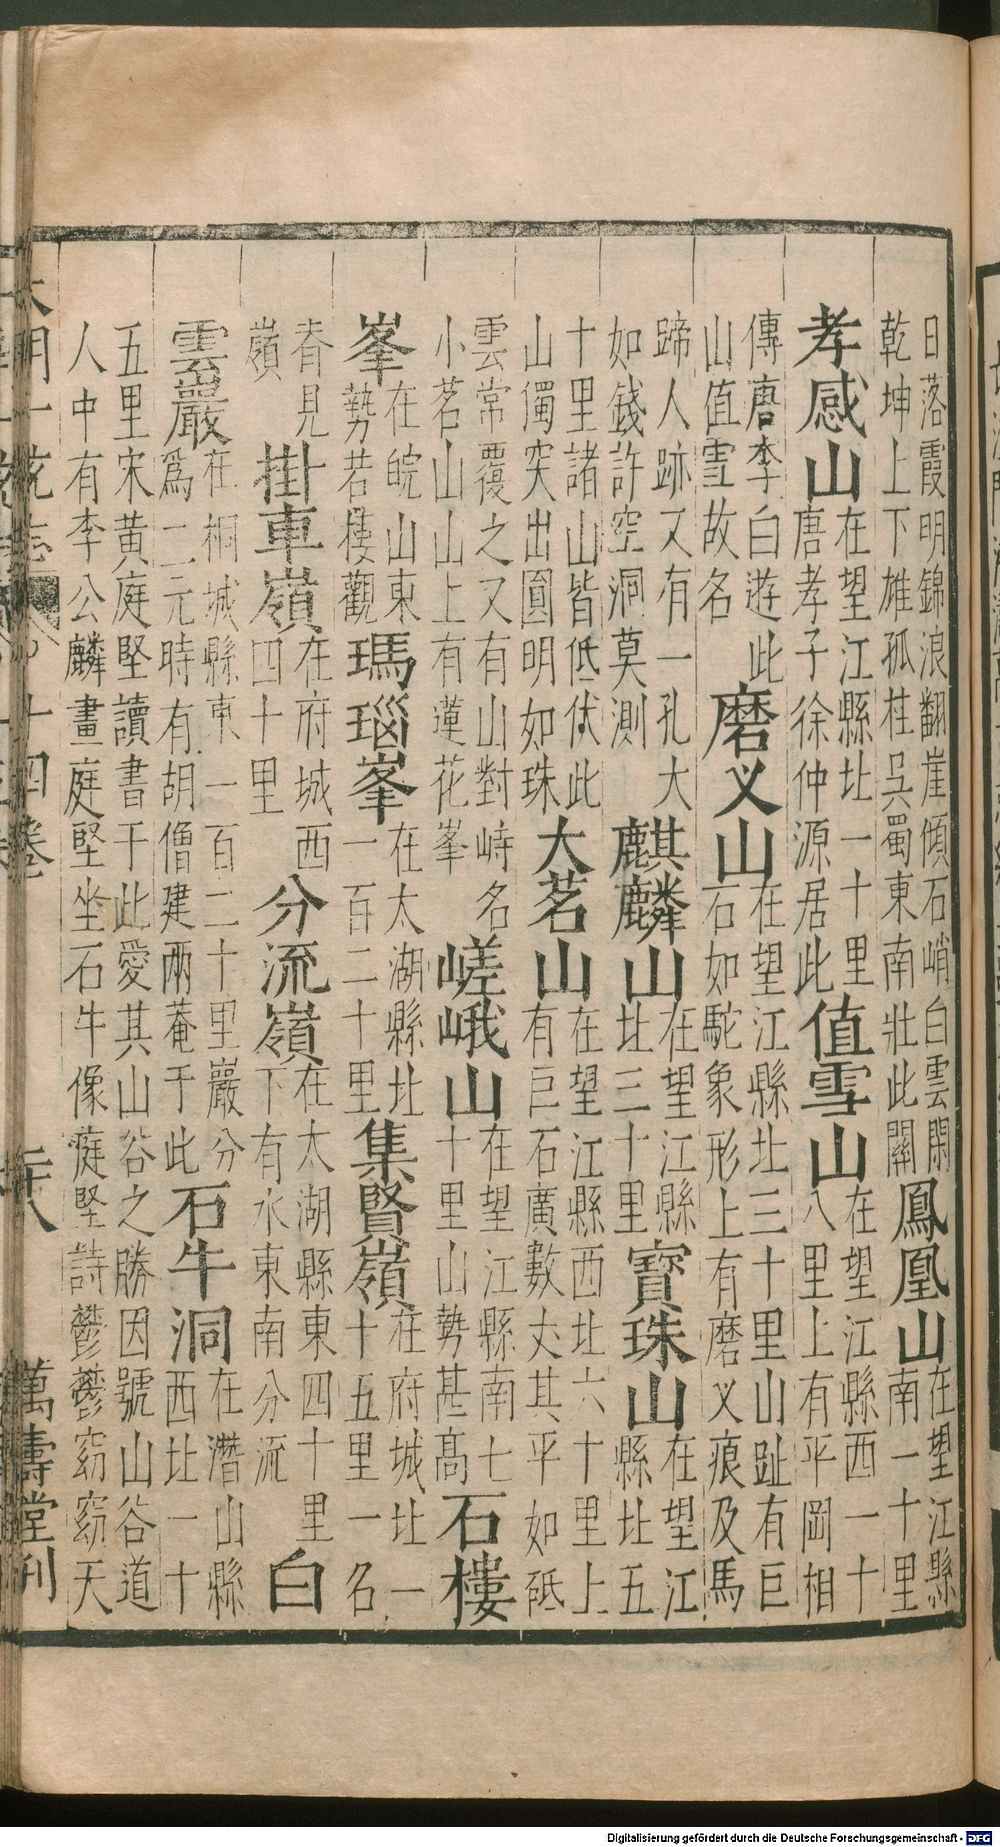 日落霞明錦浪翻崖傾石峭白雲閑
乾坤上下雄孤柱吳蜀東南壯此關
鳳凰山
在望江縣
南一十里
孝感山
在望江縣北一十里
唐孝子徐仲源居此
值雪山
在望江縣西一十
八里上有平岡相
傳唐李白遊此
山值雪故名
磨义山
在望江縣北三十里山趾有巨
石如駝象形上有磨义痕及馬
蹄人跡又有一孔大
如錢許空洞莫測
麒麟山
在望江縣
北三十里
寶珠山
在望江
縣北五
十里諸山皆低伏此
山獨突出圓明如珠
大茗山
在望江縣西北六十里上
有巨石廣數丈其平如砥
雲常覆之又有山對峙名
小茗山山上有蓮花峯
嵯峨山
在望江縣南七
十里山勢甚高
石樓
峯
在皖山東
勢若樓觀
瑪瑙峯
在太湖縣北
一百二十里
集賢嶺
在府城北一
十五里一名
見
嶺
掛車嶺
在府城西
四十里
分流嶺
在太湖縣東四十里
下有水東南分流
白
雲巖
在桐城縣東一百二十里巖分
爲二元時有胡僧建兩菴于此
石牛洞
在潛山縣
西北一十
五里宋黃庭堅讀書于此愛其山谷之勝因號山谷道
人中有李公麟畫庭堅坐石牛像庭堅詩鬱鬱窈窈天
大明一統志 十四卷 二十八 萬壽堂刊
Digitalisierung gefördert durch die Deutsche Forschungsgemeinschaft - DFG